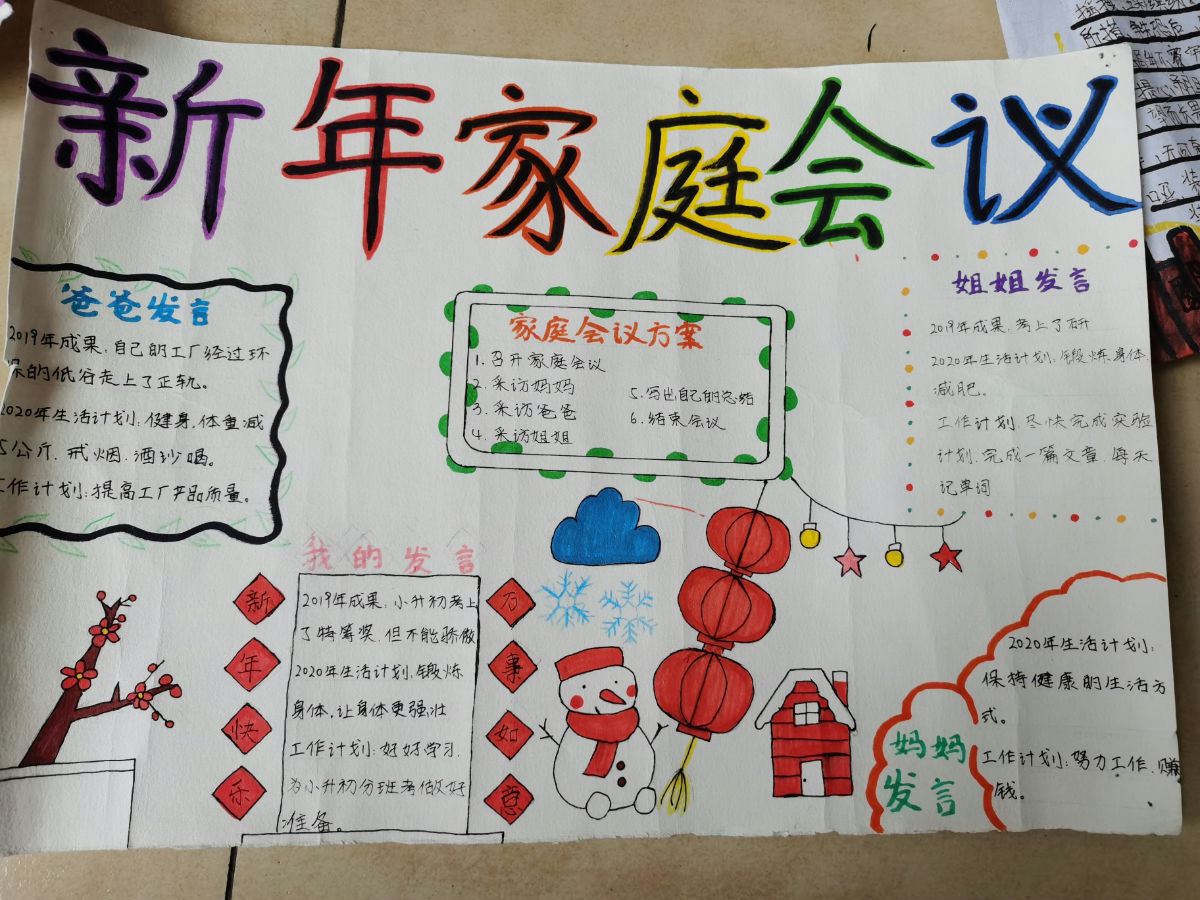 新年家庭会议
爸爸发言
2019年成果:自己的工厂经过环
保的低谷走上了正轨。
2020年生活计划:健身,体重减
5公斤,戒烟,酒少喝。
工作计划:提高工厂产品质量。
家庭会议方案
1.召开家庭会议
2.采访妈妈
3.采访爸爸
4.采访姐姐
5.写出自己的总结
6.结束会议
姐姐发言
2019年成果:考上了研
2020年生活计划:锻炼身体,
减肥。
工作计划:尽快完成实验
计划,完成一篇文章,每天
记单词
我的发言
新年快乐
2019年成果:小升初考上
了特等奖,但不能骄傲
2020年生活计划:锻炼
身体,让身体更强壮
工作计划:好好学习,
为小升初分班考做好
准备。
万事如意
妈妈
发言
2020年生活计划:
保持健康的生活方
式。
工作计划:努力工作,赚
钱。